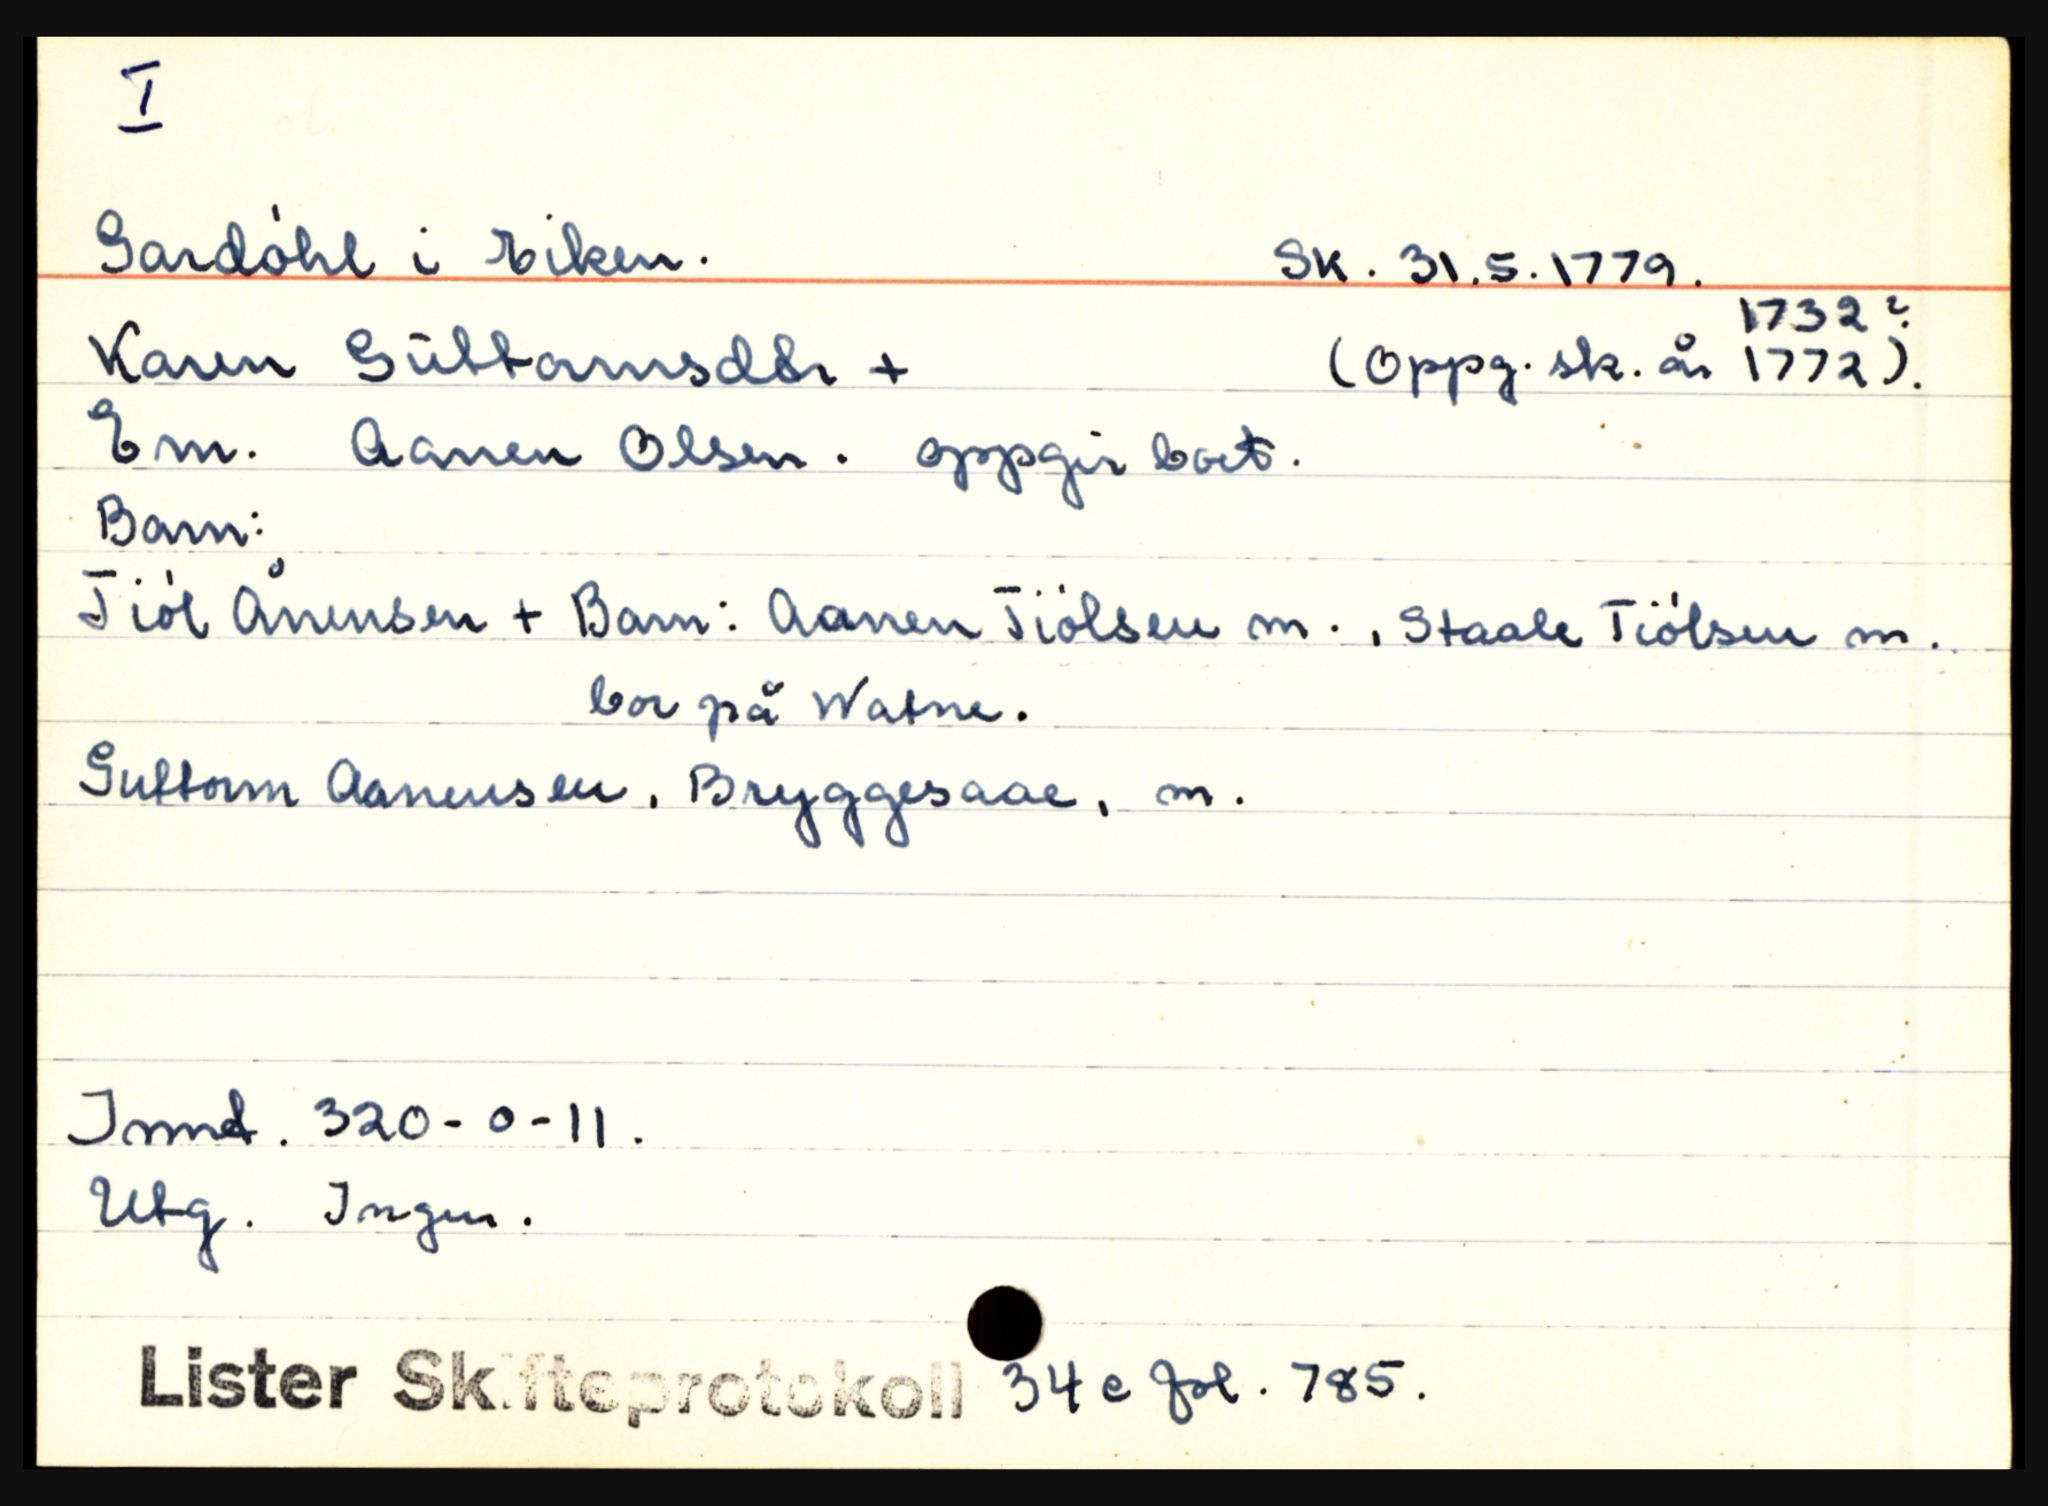 I
Gardöhl i Eiken.
Sk. 31.5.1779.
1732?
Karen Gūttormsdtr + (Oppg. sk. år 1772).
Em. Aanen Olsen. oppgir boet.
Barn:
Tiöl Ånensen + Barn: Aanen Tiölsen m., Staale Tiölsen m.
bor på Watne.
Guttorm Aanensen, Bryggesaae, m.
Innt. 320-0-11.
Utg. Ingen.
Lister Skifteprotokoll 34 c fol. 785.